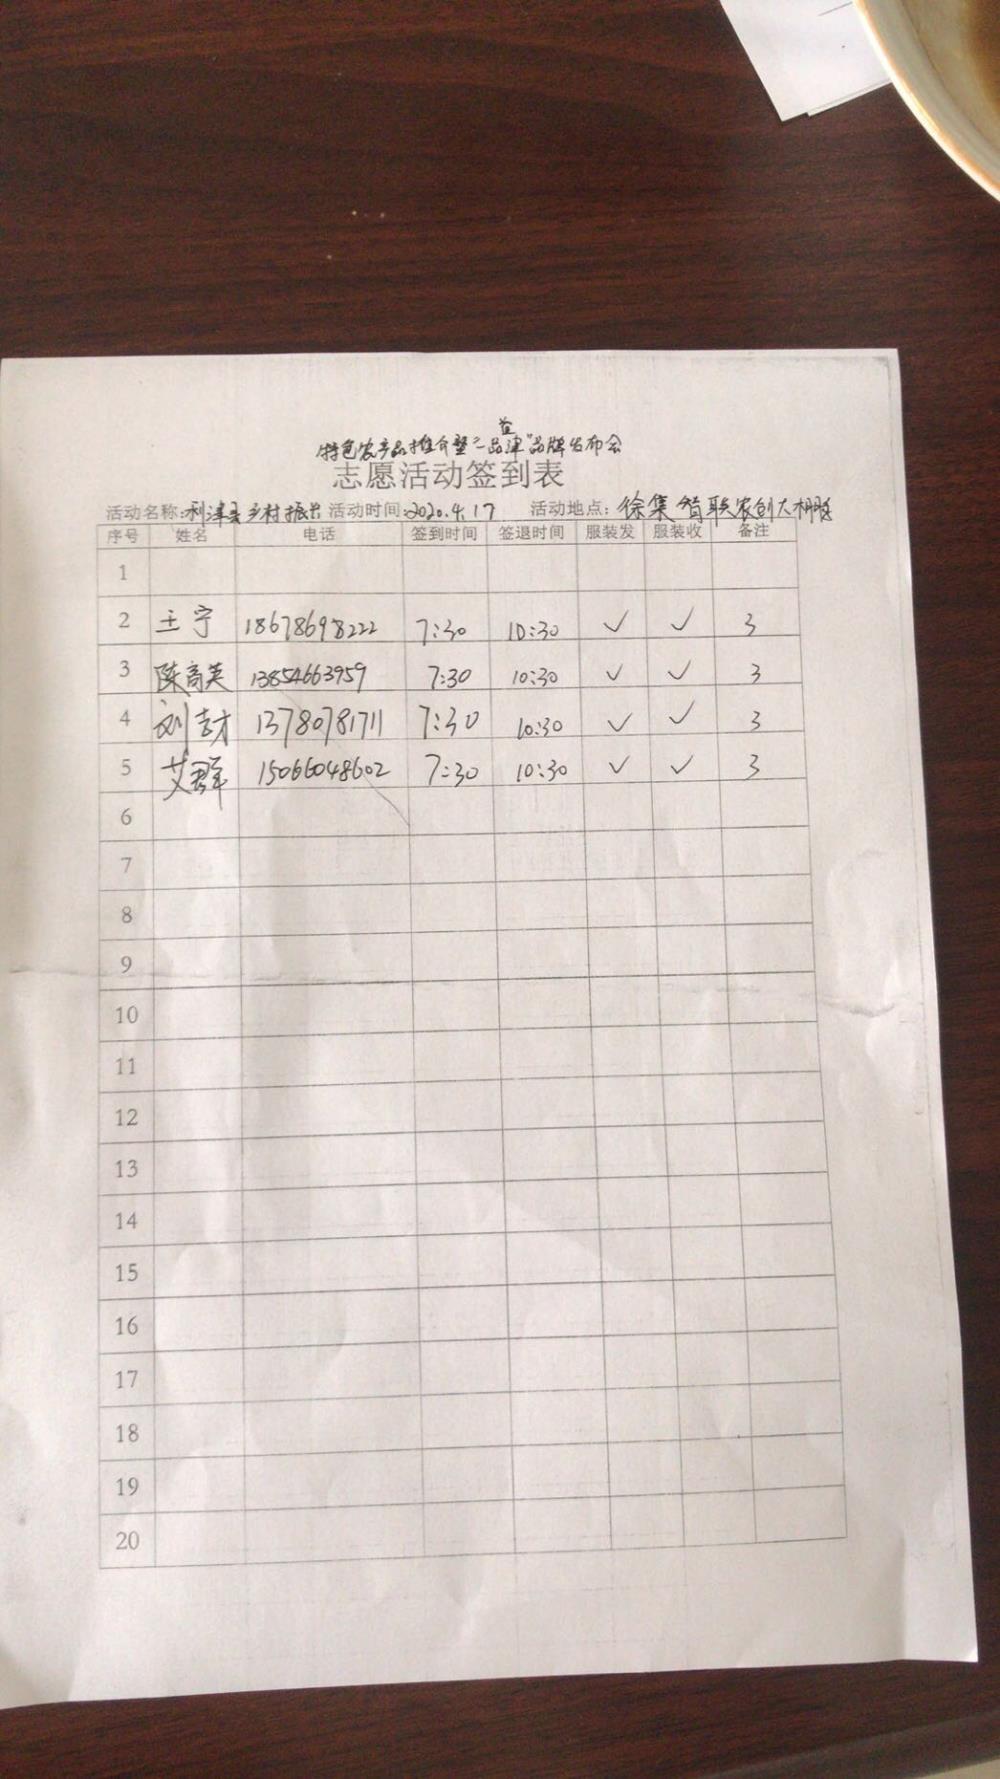 特色农产品推介暨"一品益津"品牌发布会
志愿活动签到表
活动名称:利津县乡村振兴 活动时间:2020.4.17 活动地点:徐集智联农创大棚
序号 姓名 电话 签到时间 签退时间 服装发 服装收 备注
1
2 王宁 18678698222 7:30 10:30 ✓ ✓ 3
3 陈商英 13854663959 7:30 10:30 ✓ ✓ 3
4 刘 13780781711 7:30 10:30 ✓ ✓ 3
5 艾群 15066048602 7:30 10:30 ✓ ✓ 3
6
7
8
9
10
11
12
13
14
15
16
17
18
19
20